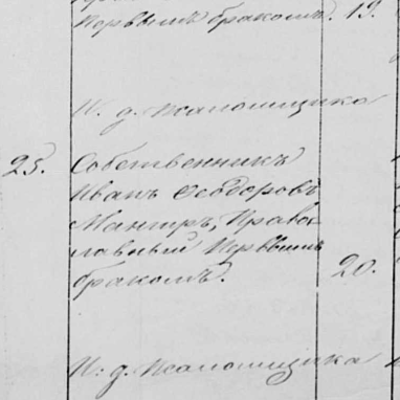 Первымъ бракомъ. 19.
И. д. Псаломщика
25. Собственникъ
Иванъ Ѳеодоровъ
Мантръ, Право-
славный Первымъ
бракомъ. 20.
И: д. Псаломщика